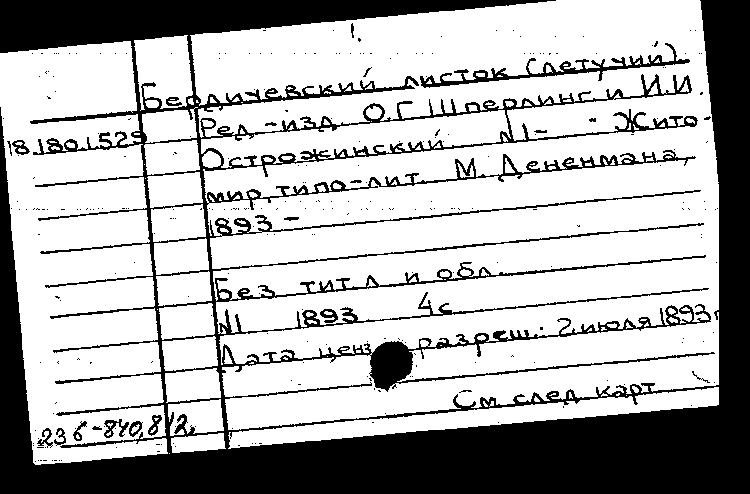 1.
Бердичевский листок (летучий).
18.180.1.529
Ред.-изд. О.Г. Шперлинг и И.И.
Острожинский. №1- Жито-
мир, типо-лит. М. Дененмана,
1893 -
Без тит. л и обл.
№1 1893 4с
Дата ценз разреш.: 2 июля 1893 г
См след карт
236-840,8/2.